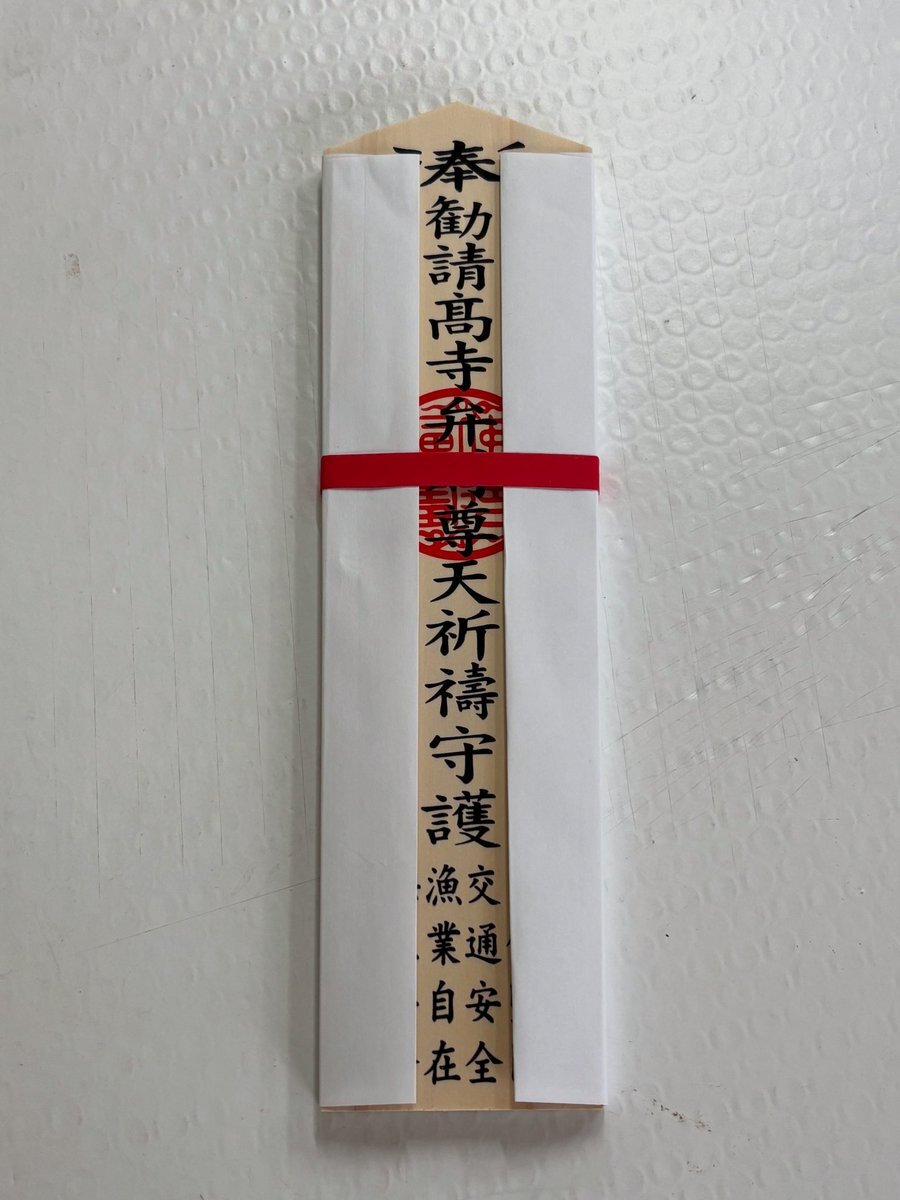 奉勧請髙寺弁
尊天祈禱守護
交通安全
漁業自在